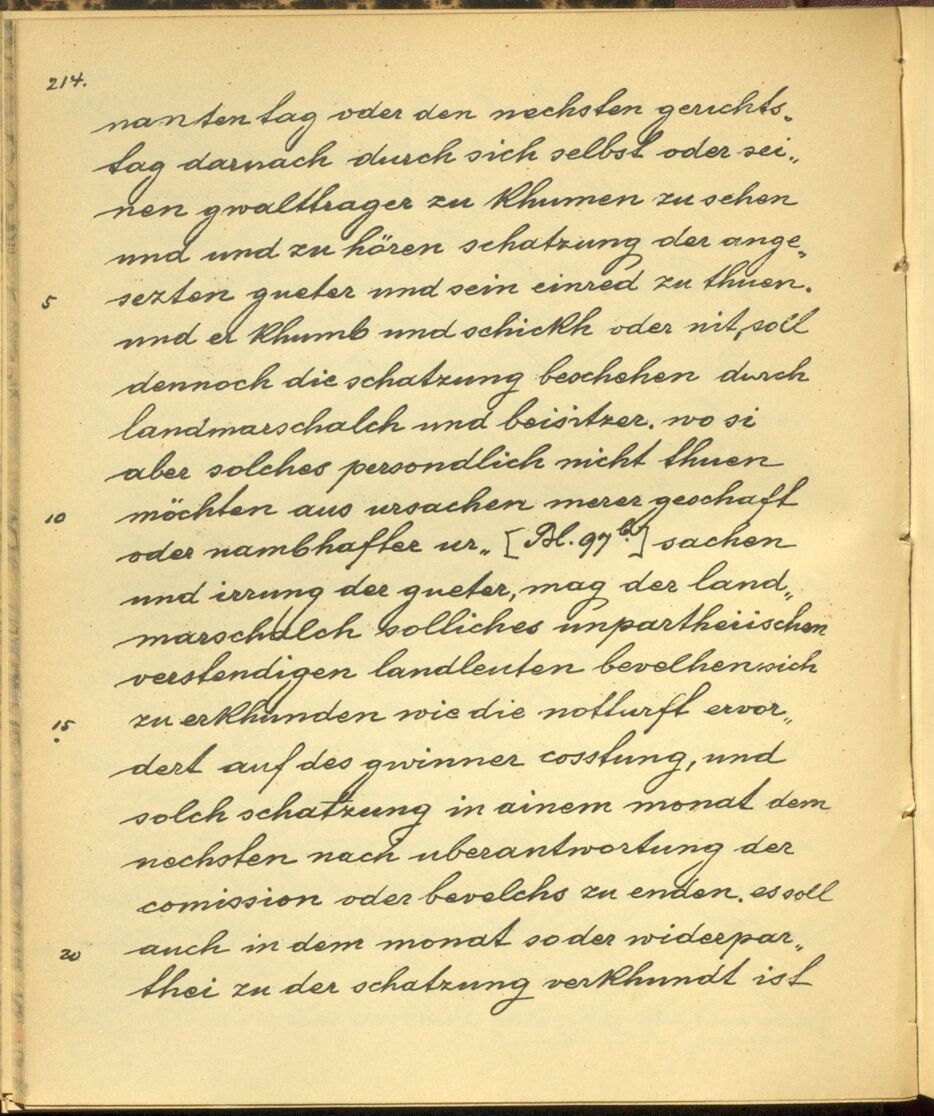 214.
nanten tag oder den nechsten gerichts„
tag darnach durch sich selbst oder sei„
nen gwalttrager zu khumen zu sehen
und und zu hören schatzung der ange„
5 sezten gueter und sein einred zu thuen.
und er khumb und schickh oder nit, soll
dennoch die schatzung beschehen durch
landmarschalch und beisitzer. wo si
aber solches persondlich nicht thuen
10 möchten aus ursachen merer geschaft
oder nambhafter ur„ [Bl. 97b.] sachen
und irrung der gueter, mag der land„
marschalch solliches unpartheiischen
verstendigen landleuten bevelhen sich
15 zu erkhunden wie die notturft ervor„
dert auf des gwinner cosstung, und
solch schatzung in ainem monat dem
nechsten nach uberantwortung der
comission oder bevelchs zu enden. es soll
20 auch in dem monat so der widerpar„
thei zu der schatzung verkhundt ist